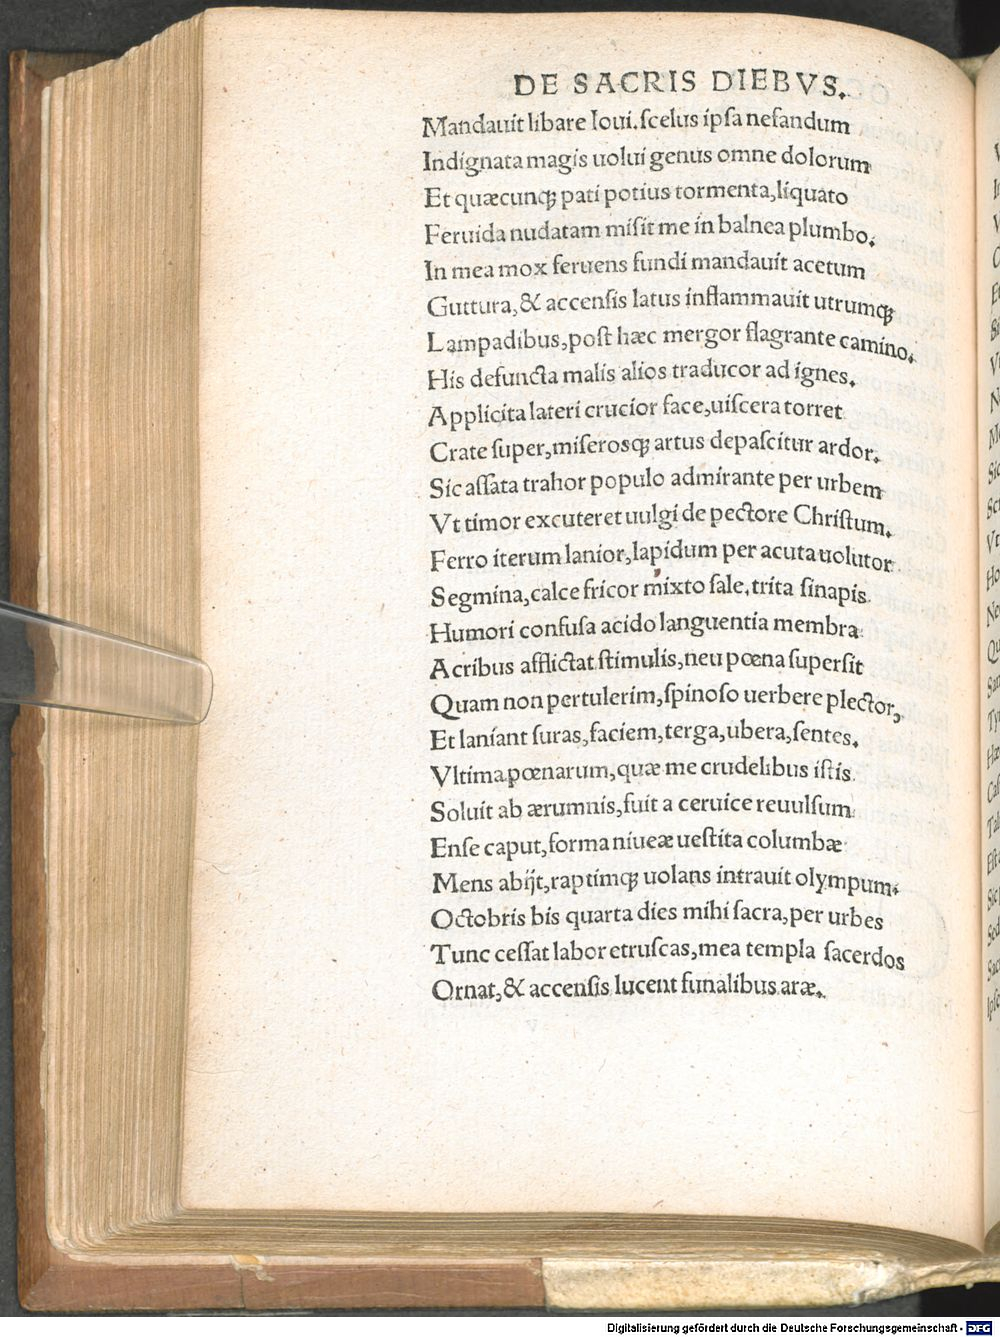 DE SACRIS DIEBVS.
Mandauit libare Ioui. scelus ipsa nefandum
Indignata magis uolui genus omne dolorum
Et quæcunq; pati potius tormenta, liquato
Feruida nudatam misit me in balnea plumbo.
In mea mox feruens fundi mandauit acetum
Guttura, & accensis latus inflammauit utrumq;
Lampadibus, post hæc mergor flagrante camino.
His defuncta malis alios traducor ad ignes.
Applicita lateri crucior face, uiscera torret
Crate super, miserosq; artus depascitur ardor.
Sic assata trahor populo admirante per urbem
Vt timor excuteret uulgi de pectore Christum.
Ferro iterum lanior, lapidum per acuta uolutor
Segmina, calce fricor mixto sale, trita sinapis
Humori confusa acido languentia membra
Acribus afflictat stimulis, neu pœna supersit
Quam non pertulerim, spinoso uerbere plector,
Et laniant suras, faciem, terga, ubera, sentes.
Vltima pœnarum, quæ me crudelibus istis
Soluit ab ærumnis, fuit a ceruice reuulsum
Ense caput, forma niueæ uestita columbæ
Mens abijt, raptimq; uolans intrauit olympum.
Octobris bis quarta dies mihi sacra, per urbes
Tunc cessat labor etruscas, mea templa sacerdos
Ornat, & accensis lucent funalibus aræ.
Digitalisierung gefördert durch die Deutsche Forschungsgemeinschaft - DFG